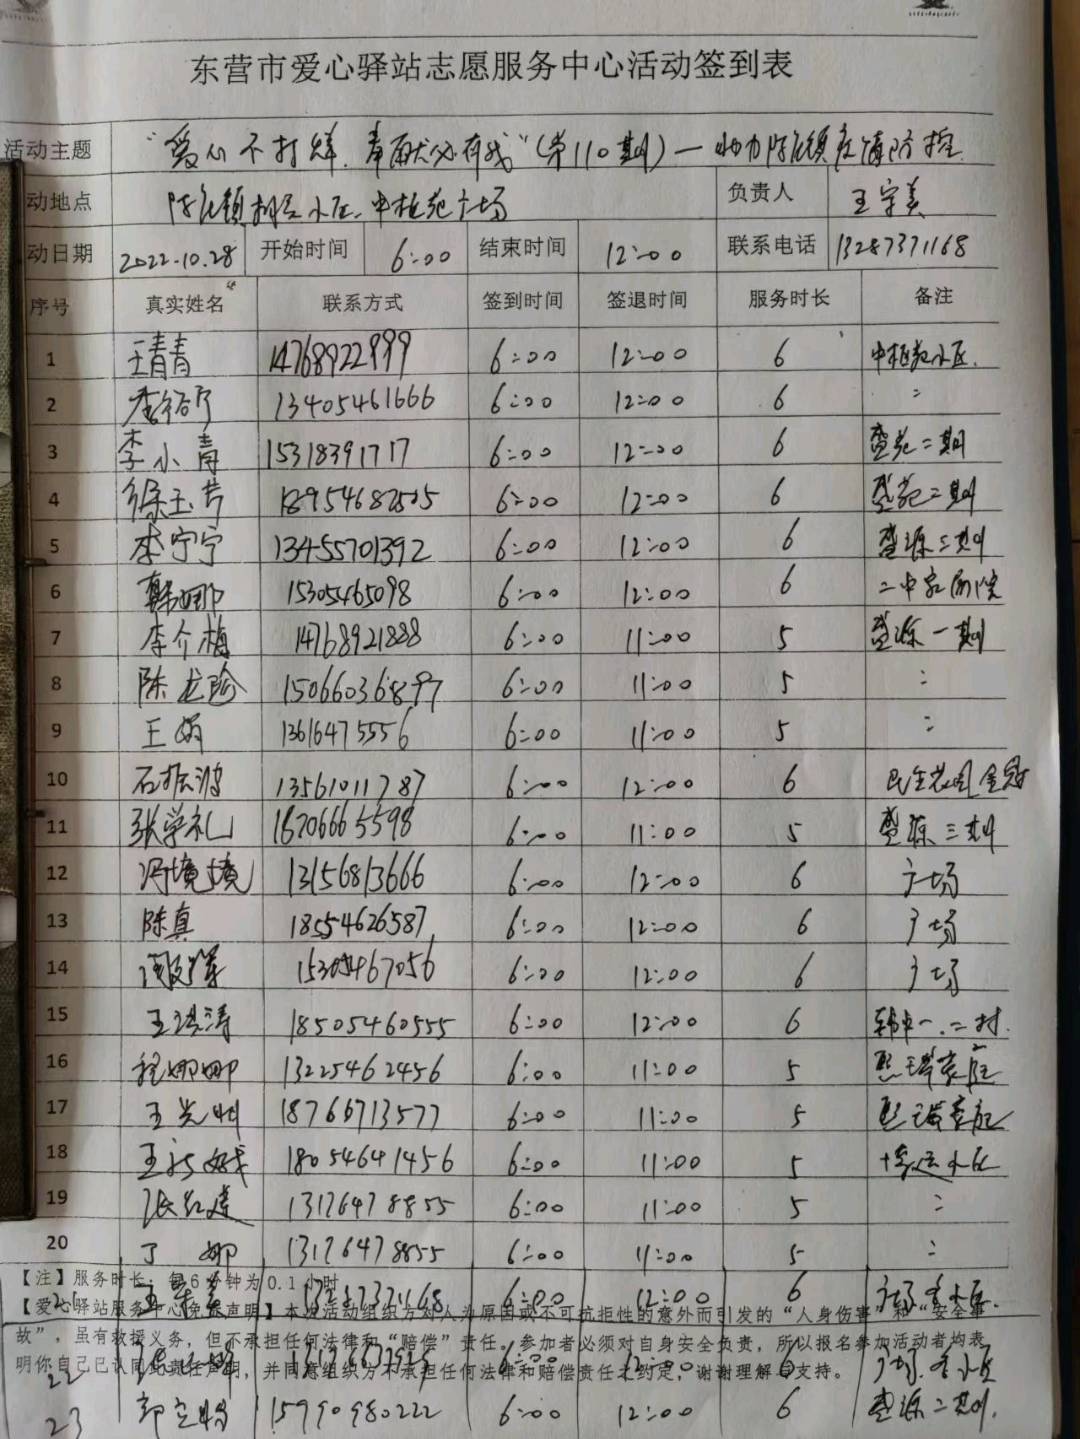 东营市爱心驿站志愿服务中心活动签到表
活动主题 “爱心不打烊,奉献必有我”(第110期)—助力陈庄镇疫情防控
动地点 陈庄镇 小区、中 苑广场 负责人 王宗美
动日期 2022.10.28 开始时间 6:00 结束时间 12:00 联系电话 13287371168
序号 真实姓名 联系方式 签到时间 签退时间 服务时长 备注
1 王青青 14768922999 6:00 12:00 6 小区.
2 13405461666 6:00 12:00 6 〃
3 李小青 15318391717 6:00 12:00 6 盛苑二期
4 徐玉芳 18954682505 6:00 12:00 6 盛苑二期
5 李宁宁 13455701392 6:00 12:00 6 盛源三期
6 韩娜娜 15305465098 6:00 12:00 6 二中家属院
7 李介梅 14768921888 6:00 11:00 5 盛源一期
8 陈龙 15066036897 6:00 11:00 5 〃
9 王娟 13616475556 6:00 11:00 5 〃
10 石振鸿 13561011787 6:00 12:00 6 民生花园
11 张学礼 18706665598 6:00 11:00 5 盛源三期
12 冯境境 13156813666 6:00 12:00 6 广场
13 陈真 18554626587 6:00 12:00 6 广场
14 15305467056 6:00 12:00 6 广场
15 王洪涛 18505460555 6:00 12:00 6 一.二村.
16 程娜娜 13225462456 6:00 11:00 5 熙瑞家庭
17 王光州 18766713577 6:00 11:00 5 熙瑞家庭
18 王 18054641456 6:00 11:00 5 小区
19 张红建 13176478855 6:00 11:00 5 〃
20 丁娜 13176478855 6:00 11:00 5 〃
【注】服务时长:每6分钟为0.1小时
21 王宗美 13287371168 6:00 12:00 6 广场各小区
【爱心驿站服务中心免责声明】本次活动组织方对人为原因或不可抗拒性的意外而引发的“人身伤害”和“安全事
故”,虽有救援义务,但不承担任何法律和“赔偿”责任。参加者必须对自身安全负责,所以报名参加活动者均表
明你自己已认同此责任声明,并同意组织方不承担任何法律和赔偿责任之约定,谢谢理解与支持。
22 6:00 12:00 6 广场.各小区
23 15990980222 6:00 12:00 6 盛源二期.